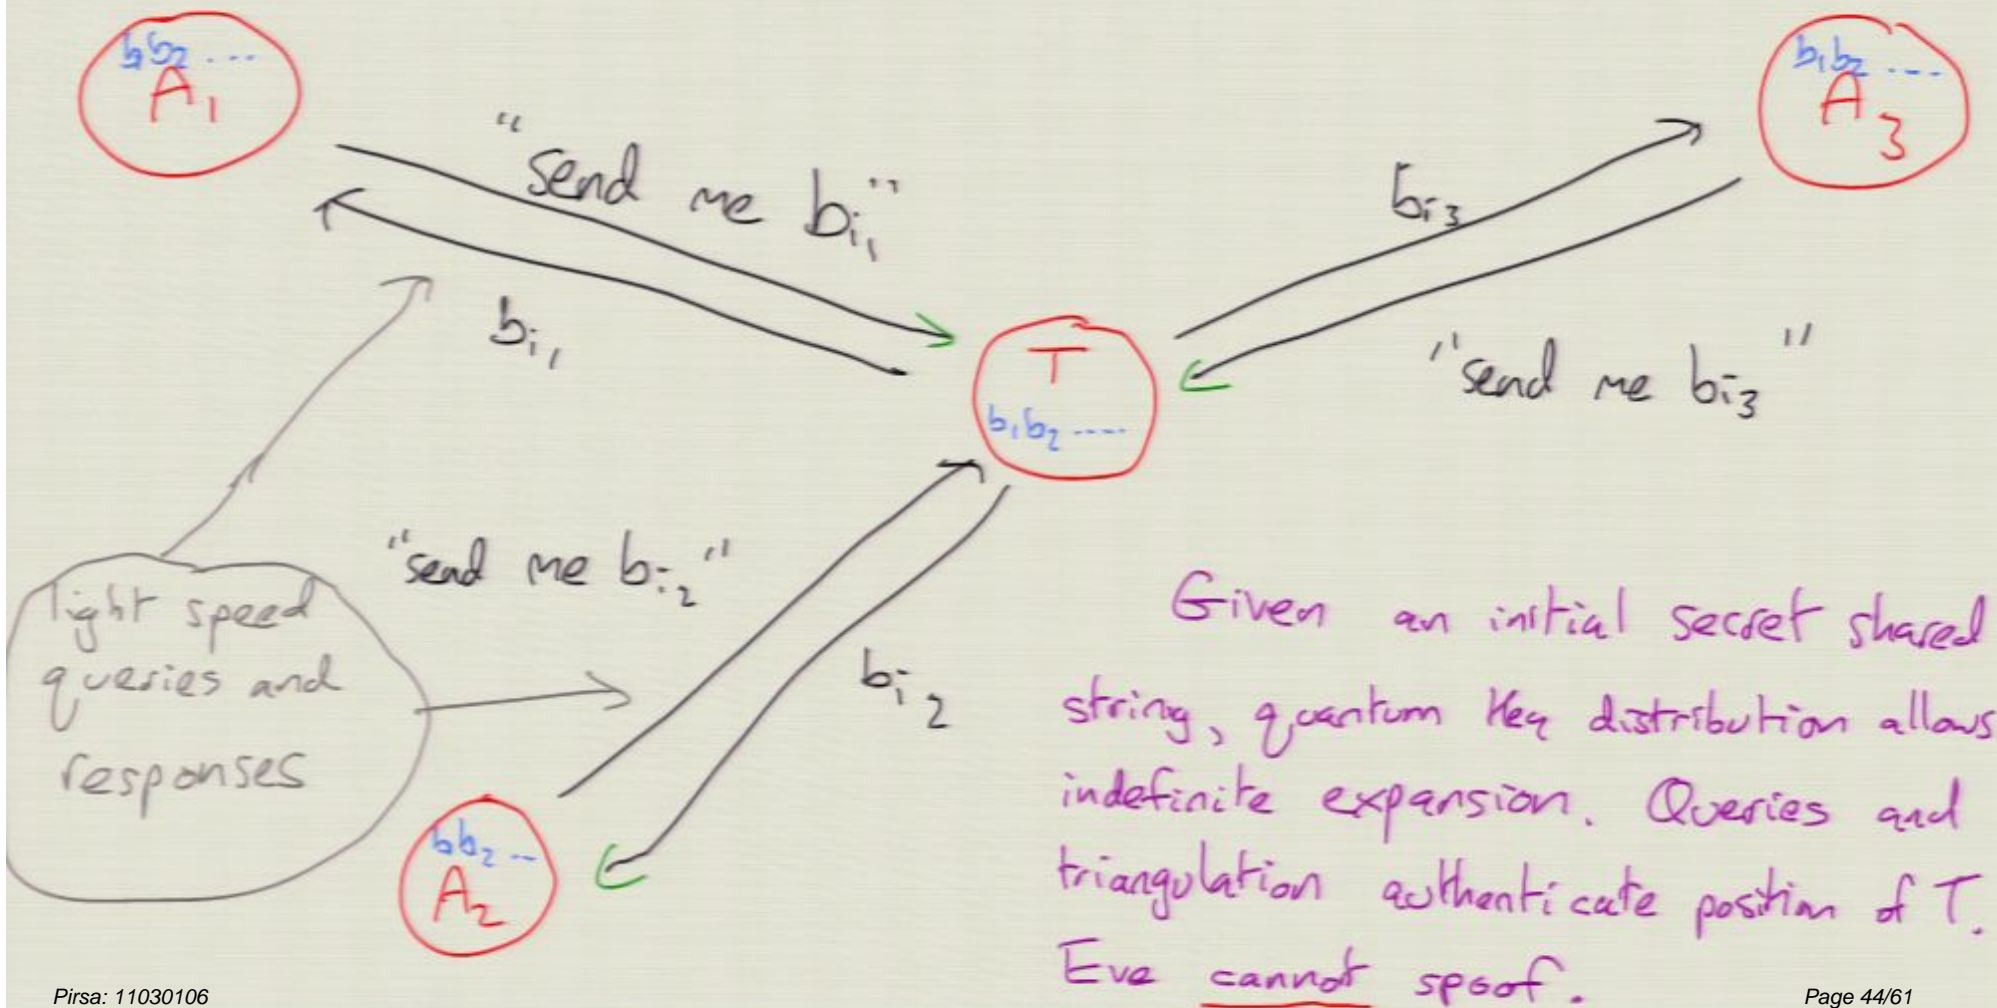 b1b2 ....
A1
b1b2 ....
A3
"send me bi1"
bi1
bi3
"send me bi3"
T
b1b2 ....
light speed
queries and
responses
"send me bi2"
bi2
b1b2 ...
A2
Given an initial secret shared
string, quantum key distribution allows
indefinite expansion. Queries and
triangulation authenticate position of T.
Eve cannot spoof.
Pirsa: 11030106
Page 44/61